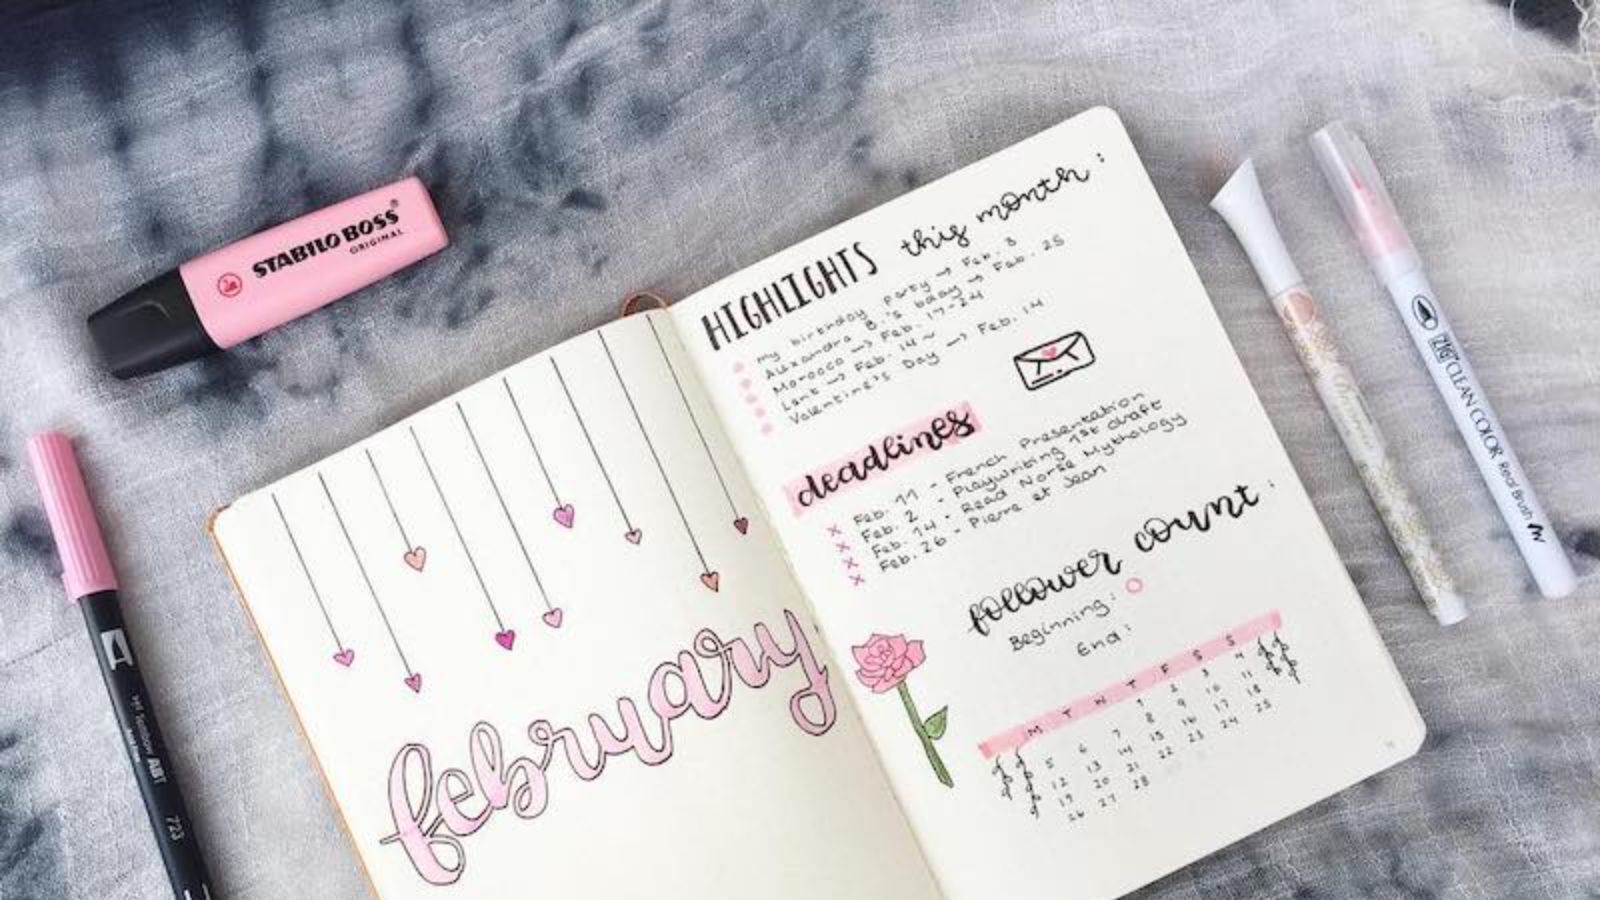 STABILO BOSS®
ORIGINAL
ABT
723
february
HIGHLIGHTS this month:
My birthday party → Feb. 3
Alexandra B.'s bday → Feb. 25
Morocco → Feb. 17-24
Lent → Feb. 14 ~
Valentine's Day → Feb. 14
deadlines
x Feb. 11 - French Presentation
x Feb. 2 - Playwriting 1st draft
x Feb. 14 - Read Norse Mythology
x Feb. 26 - Pierre et Jean
follower count:
Beginning:
End:
M T W T F S S
1 2 3 4
5 6 7 8 9 10 11
12 13 14 15 16 17 18
19 20 21 22 23 24 25
26 27 28
ZIG CLEAN COLOR Real Brush